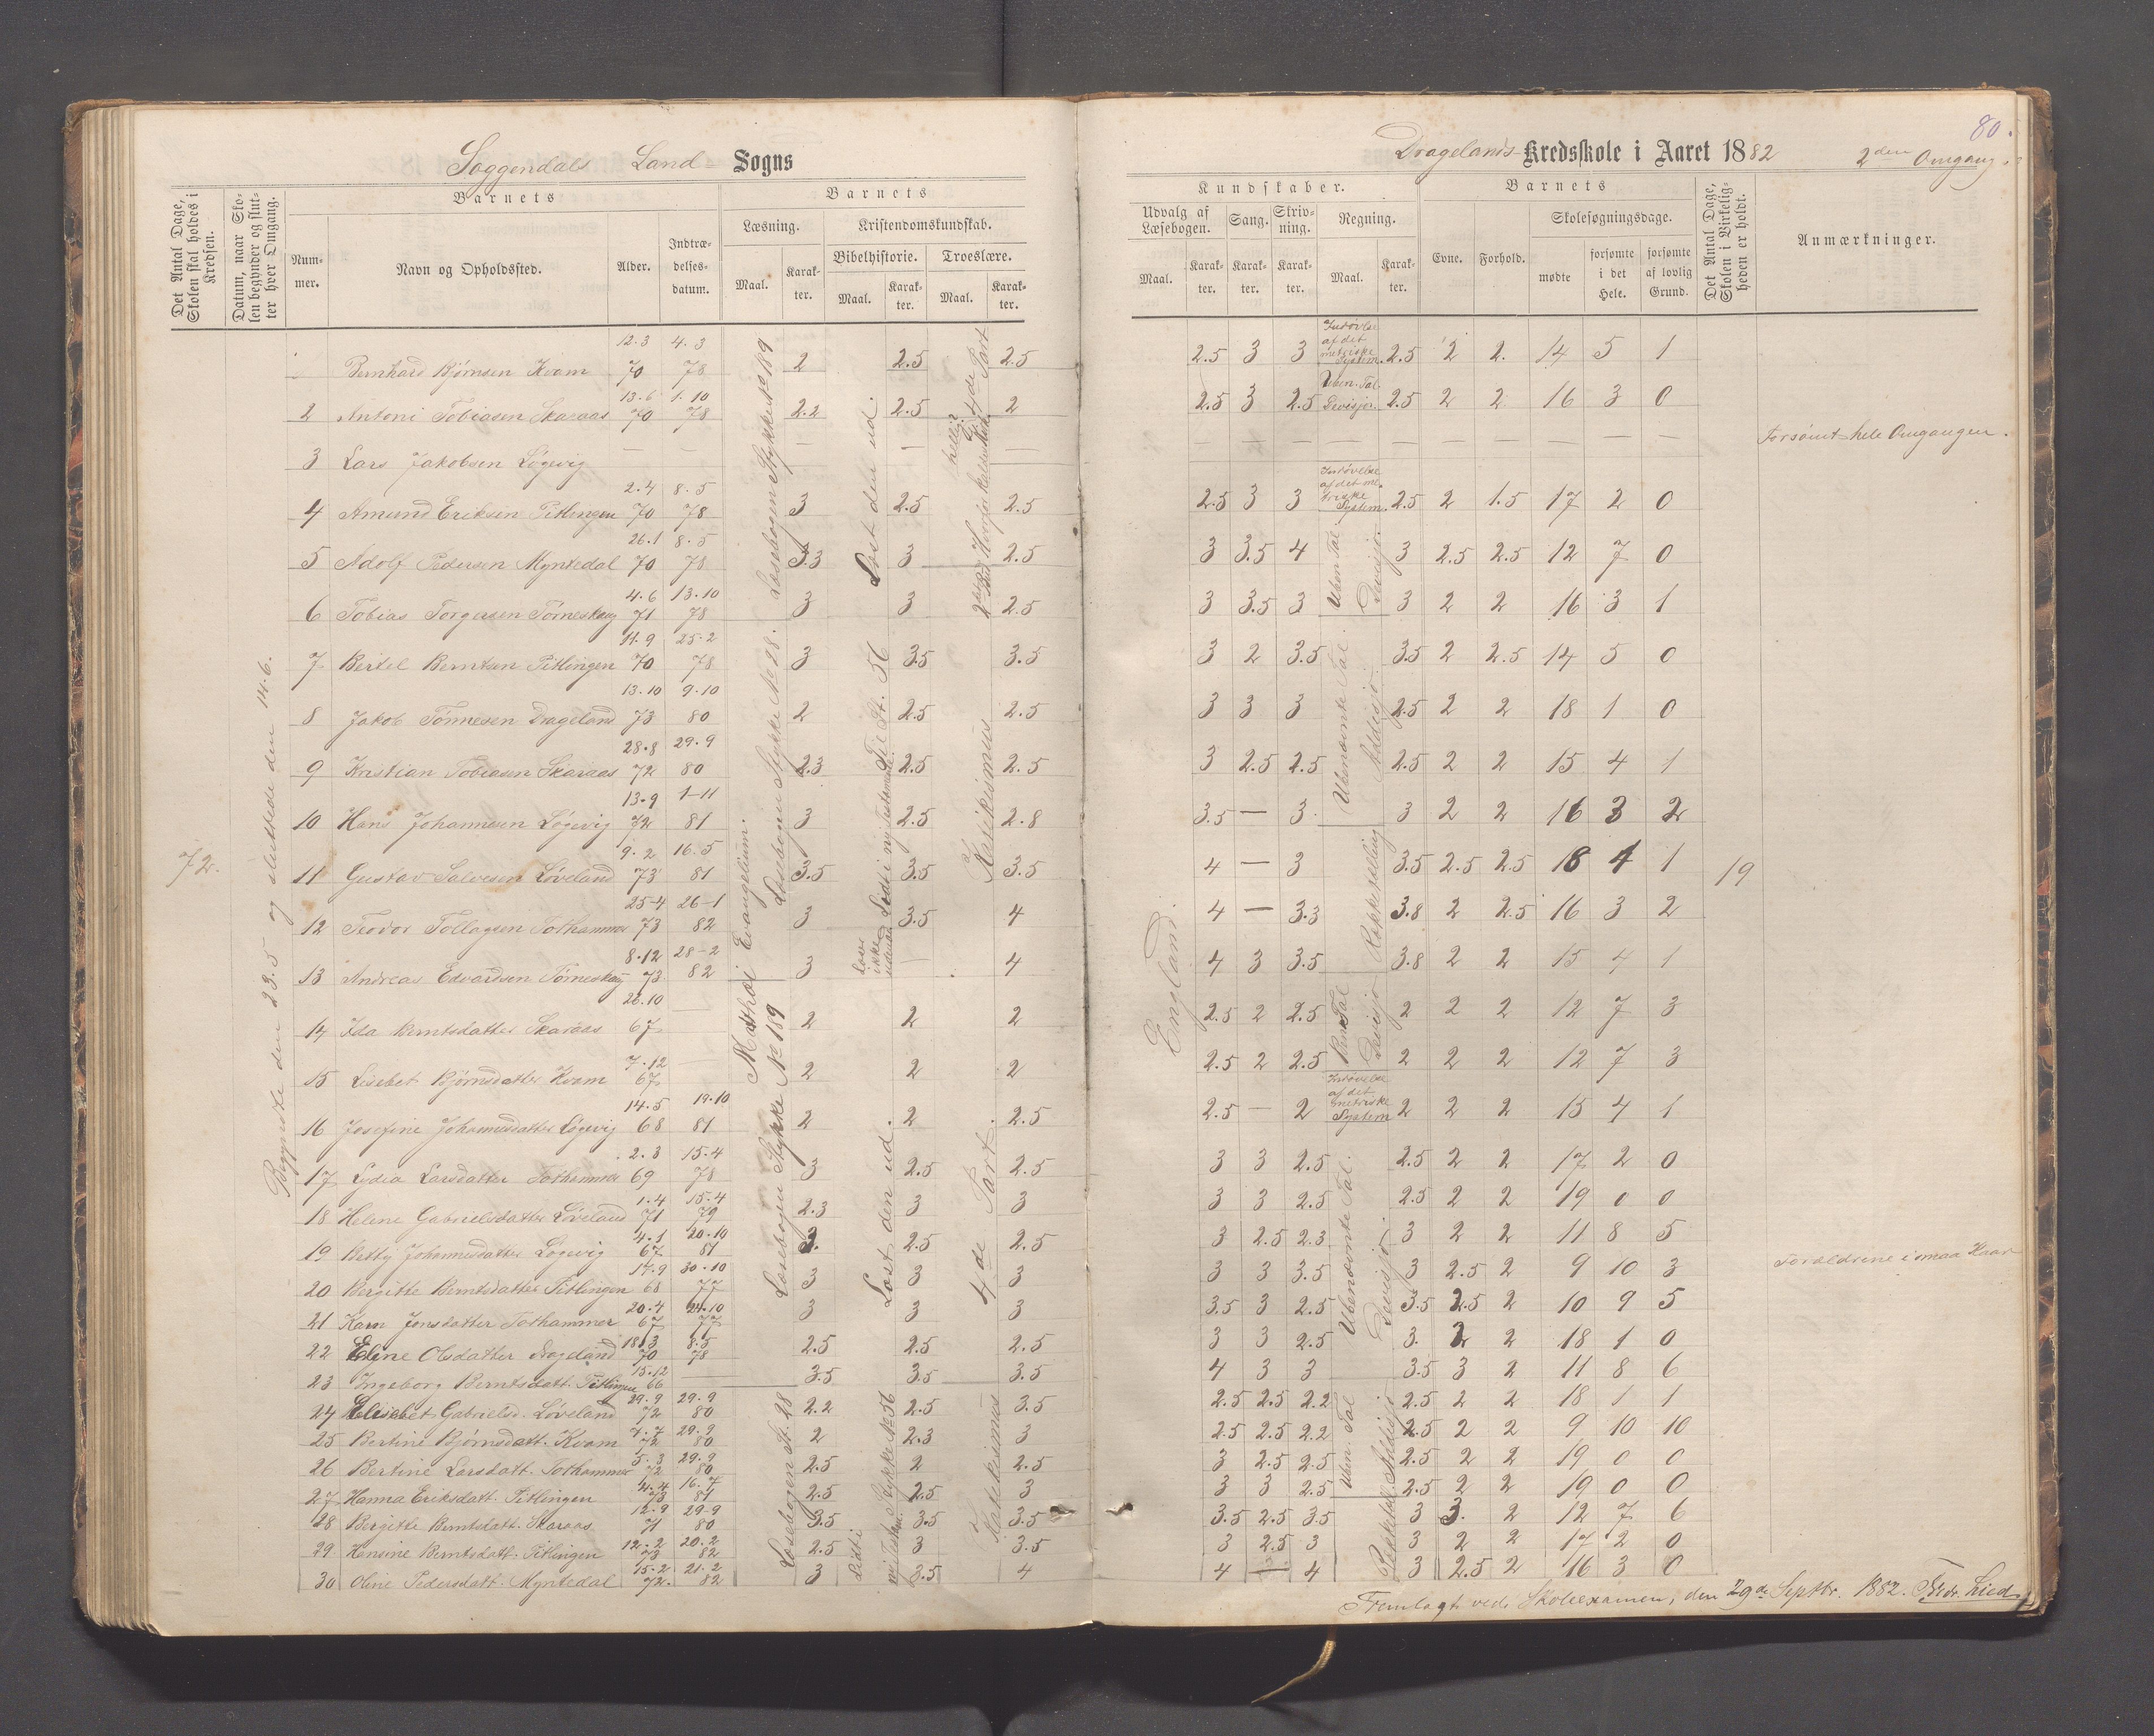 80.
Soggendals Land Sogns
Dragelands Kredsskole i Aaret 1882 2den Omgang.
Det Antal Dage, Skolen skal holdes i Kredsen.
Datum, naar Skolen begynder og slutter hver Omgang.
Barnets
Nummer.
Navn og Opholdssted.
Alder.
Indtrædelsesdatum.
Barnets
Læsning.
Maal.
Karakter.
Kristendomskundskab.
Bibelhistorie.
Maal.
Karakter.
Troeslære.
Maal.
Karakter.
Kundskaber.
Udvalg af Læsebogen.
Maal.
Karakter.
Sang.
Karakter.
Skrivning.
Karakter.
Regning.
Maal.
Karakter.
Barnets
Evne.
Forhold.
Skolesøgningsdage.
mødte
forsømte i det Hele.
forsømte af lovlig Grund.
Det Antal Dage, Skolen i Virkeligheden er holdt.
Anmærkninger.
72.
Begyndte den 23.5 og sluttede den 14.6.
Bernhard Bjørnsen Kvam 12.3 70 4.3 78 2 2.5 2.5 2.5 3 3 2.5 2 2. 14 5 1
2 Antoni Tobiasen Skaraas 13.6 70 1.10 78 2.2 2.5 2 2.5 3 2.5 2.5 2 2 16 3 0
3 Lars Jakobsen Løgevig — — — — — — — — — — — — — — Forsømt hele Omgangen.
4 Amund Eriksen Pitlingen 2.4 70 8.5 78 3 2.5 2.5 2.5 3 3 2.5 2 1.5 17 2 0
5 Adolf Pedersen Myntedal 26.1 70 8.5 78 3.3 3 2.5 3 3.5 4 3 2.5 2.5 12 7 0
6 Tobias Torgersen Tørneskog 4.6 71 13.10 78 3 3 2.5 3 3.5 3 3 2 2 16 3 1
7 Bertel Berntsen Pitlingen 14.9 70 25.2 78 3 3.5 3.5 3 2 3.5 3.5 2 2.5 14 5 0
8 Jakob Tønnesen Drageland 13.10 73 9.10 80 2 2.5 2.5 3 3 3 2.5 2 2 18 1 0
9 Kristian Tobiasen Skaraas 28.8 72 29.9 80 2.3 2.5 2.5 3 2.5 2.5 2.5 2 2 15 4 1
10 Hans Johannesen Løgevig 13.9 72 1-11 81 3 2.5 2.8 3.5 — 3. 3 2 2 16 3 2
11 Gustav Salvesen Løveland 9.2 73 16.5 81 3.5 3.5 3.5 4 — 3 3.5 2.5 2.5 18 4 1 19
12 Teodor Tollagsen Tothammer 25-4 73 26-1 82 3 3.5 4 4 — 3.3 3.8 2 2.5 16 3 2
13 Andreas Edvardsen Tørneskog 8.12 73 28-2 82 3 — 4 4 3 3.5 3.8 2 2 15 4 1
14 Ida Berntsdatter Skaraas 26.10 67 — 2 2 2 2.5 2 2.5 2 2 2 12 7 3
15 Lisebet Bjørnsdatter Kvam 7.12 67 — 2 2 2 2.5 2 2.5 2 2 2 12 7 3
16 Josefine Johannesdatter Løgevig 14.5 68 19.10 81 2 2 2.5 2.5 — 2 2 2 2 15 4 1
17 Lydia Larsdatter Tothammer 2.3 69 15.4 78 3 2.5 2.5 3 3 2.5 2.5 2 2 17 2 0
18 Helene Gabrielsdatter Løveland 1.4 71 15.4 79 2.3 3 3 3 3 2.5 2.5 2 2 19 0 0
19 Betty Johannesdatter Løgevig 4.1 67 20.10 81 2. 2.5 2.5 3 2.5 2.3 3 2 2 11 8 5
20 Bergitte Berntsdatter Pitlingen 17.9 68 30.10 77 3 3 3 3 3 3.5 3 2.5 2 9 10 3 Foraldrene i smaa Kaar
21 Karn Jonsdatter Tothammer 20.4 67 24.10 77 3 3 3 3.5 3 2.5 3.5 2.5 2 10 9 5
22 Eline Olsdatter Drageland 18.3 70 8.5 78 2.5 2.5 2.5 3 3 2.5 3. 2 2 18 1 0
23 Ingeborg Berntsdatt. Pitlingen 15.12 66 — 3.5 3.5 3.5 4 3 3 3.5 3 2 11 8 6
24 Elisebet Gabrielsd. Løveland 29.9 72 29.9 80 2.2 2.5 3.5 2.5 2.5 2.2 2.5 2 2 18 1 1
25 Bertine Bjørnsdatt. Kvam 4.7 72 29.9 80 2 2.3 3 2.5 2.5 2.2 2.5 2 2 9 10 10
26 Bertine Larsdatt. Tothammer 5.3 72 29.9 80 2.5 2 2.5 3 2.5 2.5 2.5 2 2 19 0 0
27 Hanna Eriksdatt. Pitlingen 4.4 73 16.7 81 2.5 2.5 3 3 3 2.5 2.5 2 2 19 0 0
28 Bergitte Berntsdatt. Skaraas 12.9 71 29-9 80 3.5 3.5 3.5 3.5 2.5 3.5 3 3. 2 12 7 6
29 Hansine Berntsdatt. Pitlingen 12.2 73 20.2 82 2.5 3 3.5 3 2.5 3 3 2 2 17 2 0
30 Oline Pedersdatt. Myntedal 15.2 72. 21.2 82 3 3.5 4 4 — 4 3 2.5 2 16 3 0
Læsebogen Stykke No 189
Læsebogen Stykke No 28.
Mathæi Evangelium.
Læsebogen Stykke No 189
Læsebogen St. 28
Læst den ud.
Til St. 56
Lidt i ny Testamente
Læser ikke udenad
Læst den ud
Stykke No 56
Lidt i
4de Part
Katekismus
4de Part.
Katekismus
England.
Indøvelse af det metriske System.
Uben. Tal. Devisjon.
Indøvelse af det metriske System.
Uben Tal Devisjo.
Ubenævnte Tal. Addisjo.
Rækketælling
Ben Tal Devisjo
Indøvelse af det metriske System
Ubenævnte Tal. Devisjo.
Uben. Tal Addisjo
Fremlagt ved Skoleexamen, den 29de Septbr. 1882.